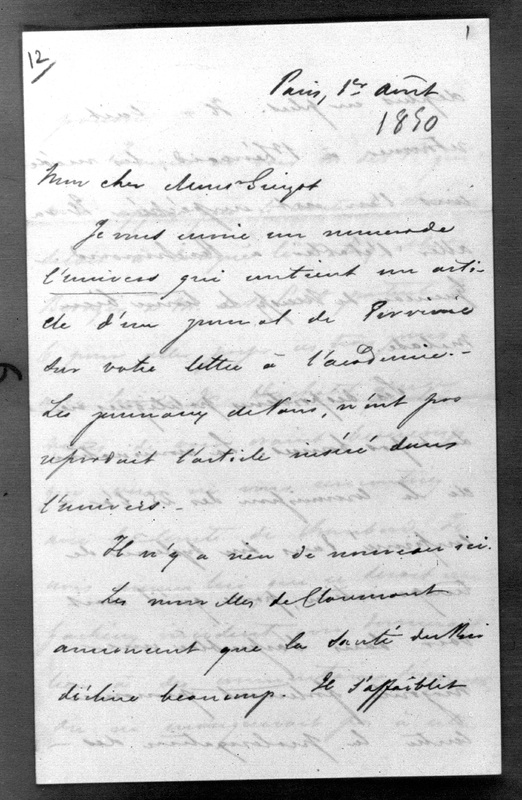 12
1
Paris, 1er août
1850
Mon cher Monsr Guizot
Je vous envoie un numero de
l'univers qui contient un arti-
cle d'un journal de
sur votre lettre à l'academie. -
Les journaux de Paris, n'ont pas
reproduit l'article inséré dans
l'univers. -
Il n'y a rien de nouveau ici.
Les nouvelles de Claremont
annoncent que la santé du Roi
décline beaucoup. Il s'affaiblit